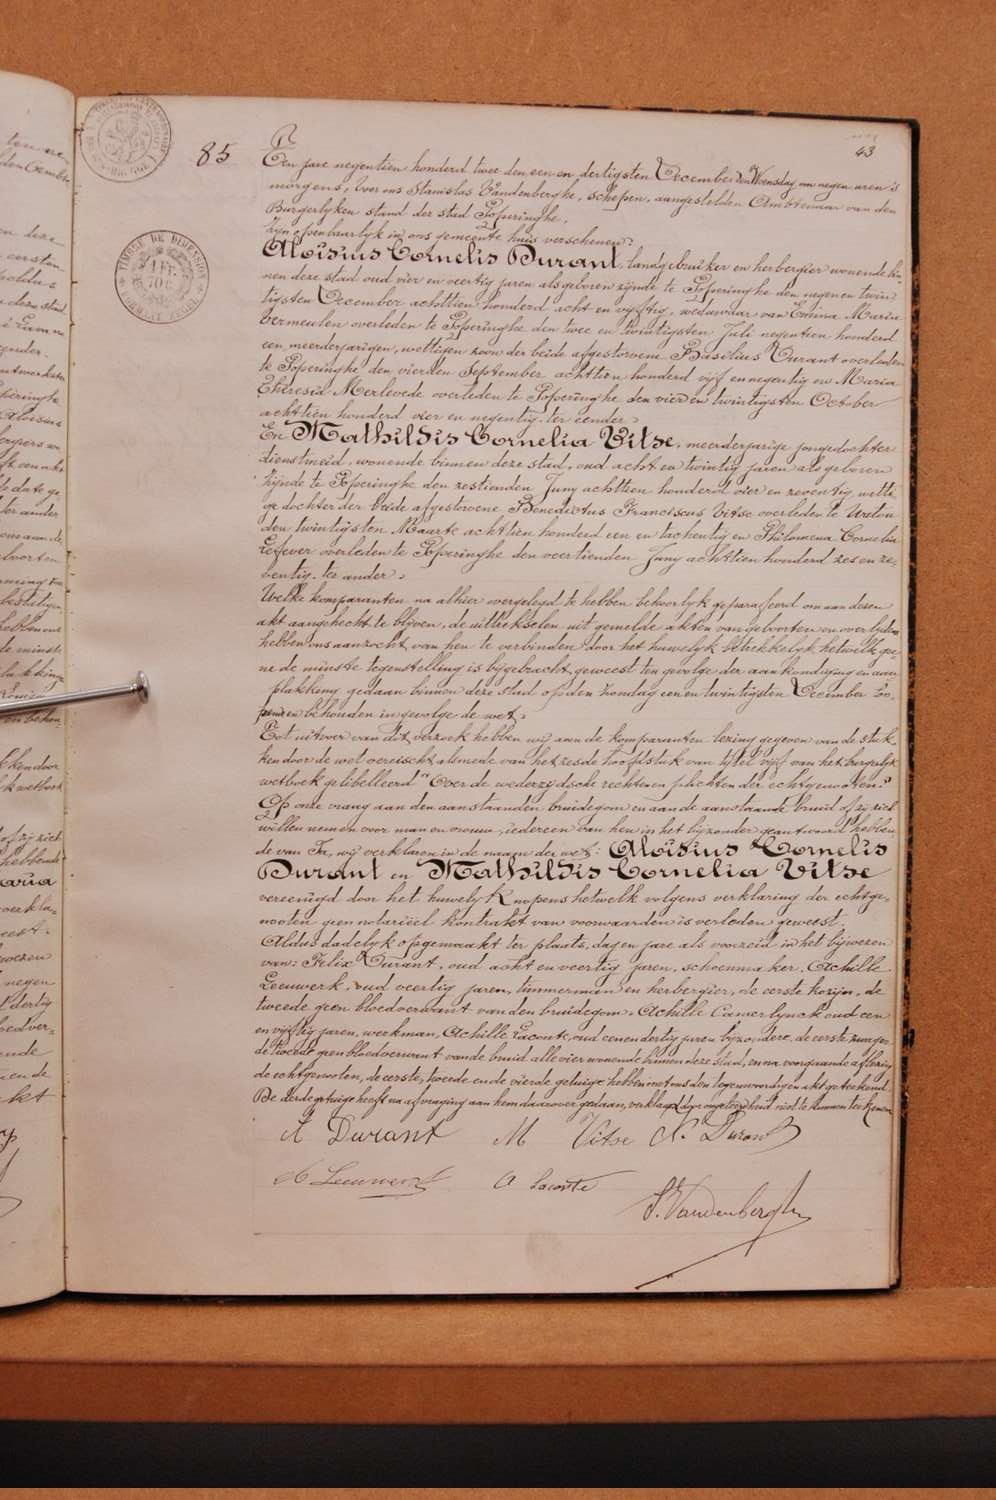 43
85
TIMBRE DE DIMENSION
1 FR. 70 C.
FORMAAT ZEGEL
Een jare negentien honderd twee den een en dertigsten December den Woensdag om negen uren 's
morgens, voor ons Stanislas Vandenberghe, schepen, aangestelden Ambtenaar van den
Burgerlyken stand der stad Poperinghe,
Zyn openbaarlyk in ons gemeente huis verschenen:
Aloisius Cornelis Durant, landgebruiker en herbergier wonende bin-
nen deze stad oud vier en veertig jaren als geboren zynde te Poperinghe den negen en twin-
tigsten December achttien honderd acht en vyftig, weduwaar van Emina Maria
Vermeulen overleden te Poperinghe den twee en twintigsten Juli negentien honderd
een, meerderjarigen, wettigen zoon der beide afgestorvene Basilius Durant overleden
te Poperinghe den vierden September achttien honderd vijf en negentig en Maria
Theresia Merlevede overleden te Poperinghe den vier en twintigsten October
achttien honderd vier en negentig. ter eender;
En Mathildis Cornelia Vitse, meerderjarige jongedochter
dienstmeid, wonende binnen deze stad, oud acht en twintig jaren als geboren
zynde te Poperinghe den zestienden Juny achttien honderd vier en zeventig wetti-
ge dochter der beide afgestorvene Benedictus Franciscus Vitse overleden te Watou
den twintigsten Maarte achttien honderd een en tachentig en Philomena Cornelia
Lefever overleden te Poperinghe den veertienden Juny achttien honderd zes en ze-
ventig. te ander;
Welke komparanten na alhier overgelegd te hebben behoorlyk geparafeerd om aan dezen
akt aangehecht te blyven, de uittrekselen uit gemelde akten van geboorten en overlydens
hebben ons aanzocht van hen te verbinden door het huwelyk betrekkelyk hetwelk gee-
ne de minste tegenstelling is bygebracht geweest ten gevolge der aankondiging en aan-
plakking gedaan binnen deze stad op den Zondag een en twintigsten December loo-
pende en behouden ingevolge de wet;
Tot uitvoer van dit verzoek hebben wij aan de komparanten lezing gegeven van de stuk-
ken door de wet vereischt alsmede van het zesde hoofdstuk van tytel vijf van het burgerlyk
wetboek gelibelleerd "Over de wederzydsche rechten en plichten der echtgenooten."
Op onze vraag aan den aanstaanden bruidegom en aan de aanstaande bruid of zy zich
willen nemen voor man en vrouw, iedereen van hen in het byzonder geantwoord hebben
de van Ja, wy verklaren in de naam der wet: Aloisius Cornelis
Durant en Mathildis Cornelia Vitse
vereenigd door het huwelyk Knopens hetwelk volgens verklaring der echtge-
nooten geen notariëel kontrakt van voorwaarden is verleden geweest.
Aldus dadelyk opgemaakt ter plaats, dag en jare als voorzeid in het bijwezen
van: Felix Durant, oud acht en veertig jaren, schoenmaker, Achille
Leeuwerk, oud veertig jaren, timmerman en herbergier, de eerste kozijn, de
tweede geen bloedverwant van den bruidegom, Achille Camerlynck oud een
en vyftig jaren, werkman, Achille Laconte, oud een en dertig jaren byzondere, de eerste zwager
de tweede geen bloedverwant van de bruid alle vier wonende binnen deze stad, en na voorgaande aflezing
de echtgenooten, de eerste, tweede en de vierde getuige hebben met ons den tegenwoordigen akt geteekend
De derde getuige heeft na afvraging aan hem daarover gedaan, verklaard door ongeleerdheid niet te kunnen teekenen
A Durant M Vitse F. Durant
A Leeuwerck A Laconte
S. Vandenberghe